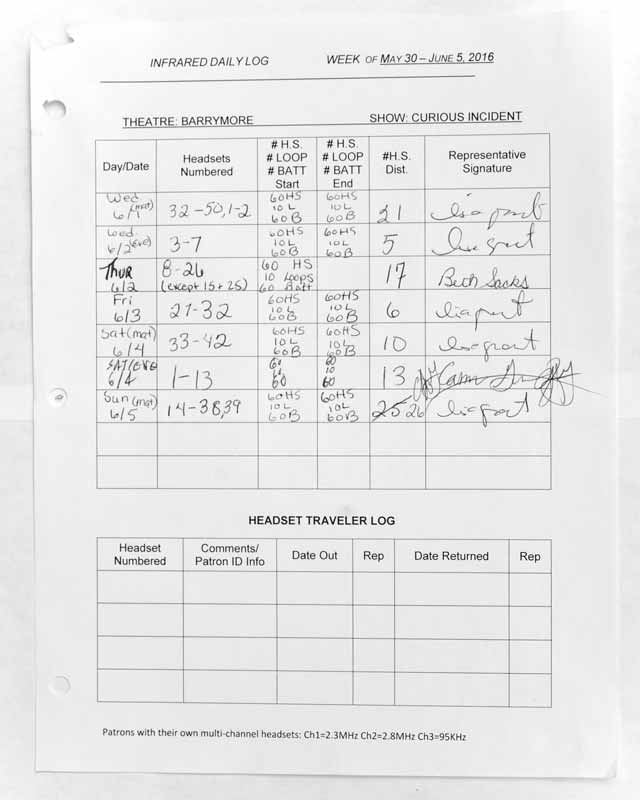 INFRARED DAILY LOG WEEK OF MAY 30 – JUNE 5, 2016
THEATRE: BARRYMORE SHOW: CURIOUS INCIDENT
Day/Date Headsets Numbered # H.S. # LOOP # BATT Start # H.S. # LOOP # BATT End #H.S. Dist. Representative Signature
Wed (mat) 6/1 32-50, 1-2 60HS 10 L 60B 60HS 10L 60B 21
Wed. 6/2 (eve) 3-7 60HS 10L 60B 60HS 10L 60B 5
Thur 6/2 8-26 (except 15 + 25) 60 HS 10 Loops 60 Batt 17 Beth Sacks
Fri 6/3 27-32 60HS 10L 60B 60HS 10L 60B 6
Sat (mat) 6/4 33-42 60HS 10L 60B 60HS 10L 60B 10
SAT/EVE 6/4 1-13 60 60 60 10 60 13
Sun (mat) 6/5 14-38,39 60HS 10L 60B 60HS 10L 60B 25 26
HEADSET TRAVELER LOG
Headset Numbered Comments/ Patron ID Info Date Out Rep Date Returned Rep
Patrons with their own multi-channel headsets: Ch1=2.3MHz Ch2=2.8MHz Ch3=95KHz